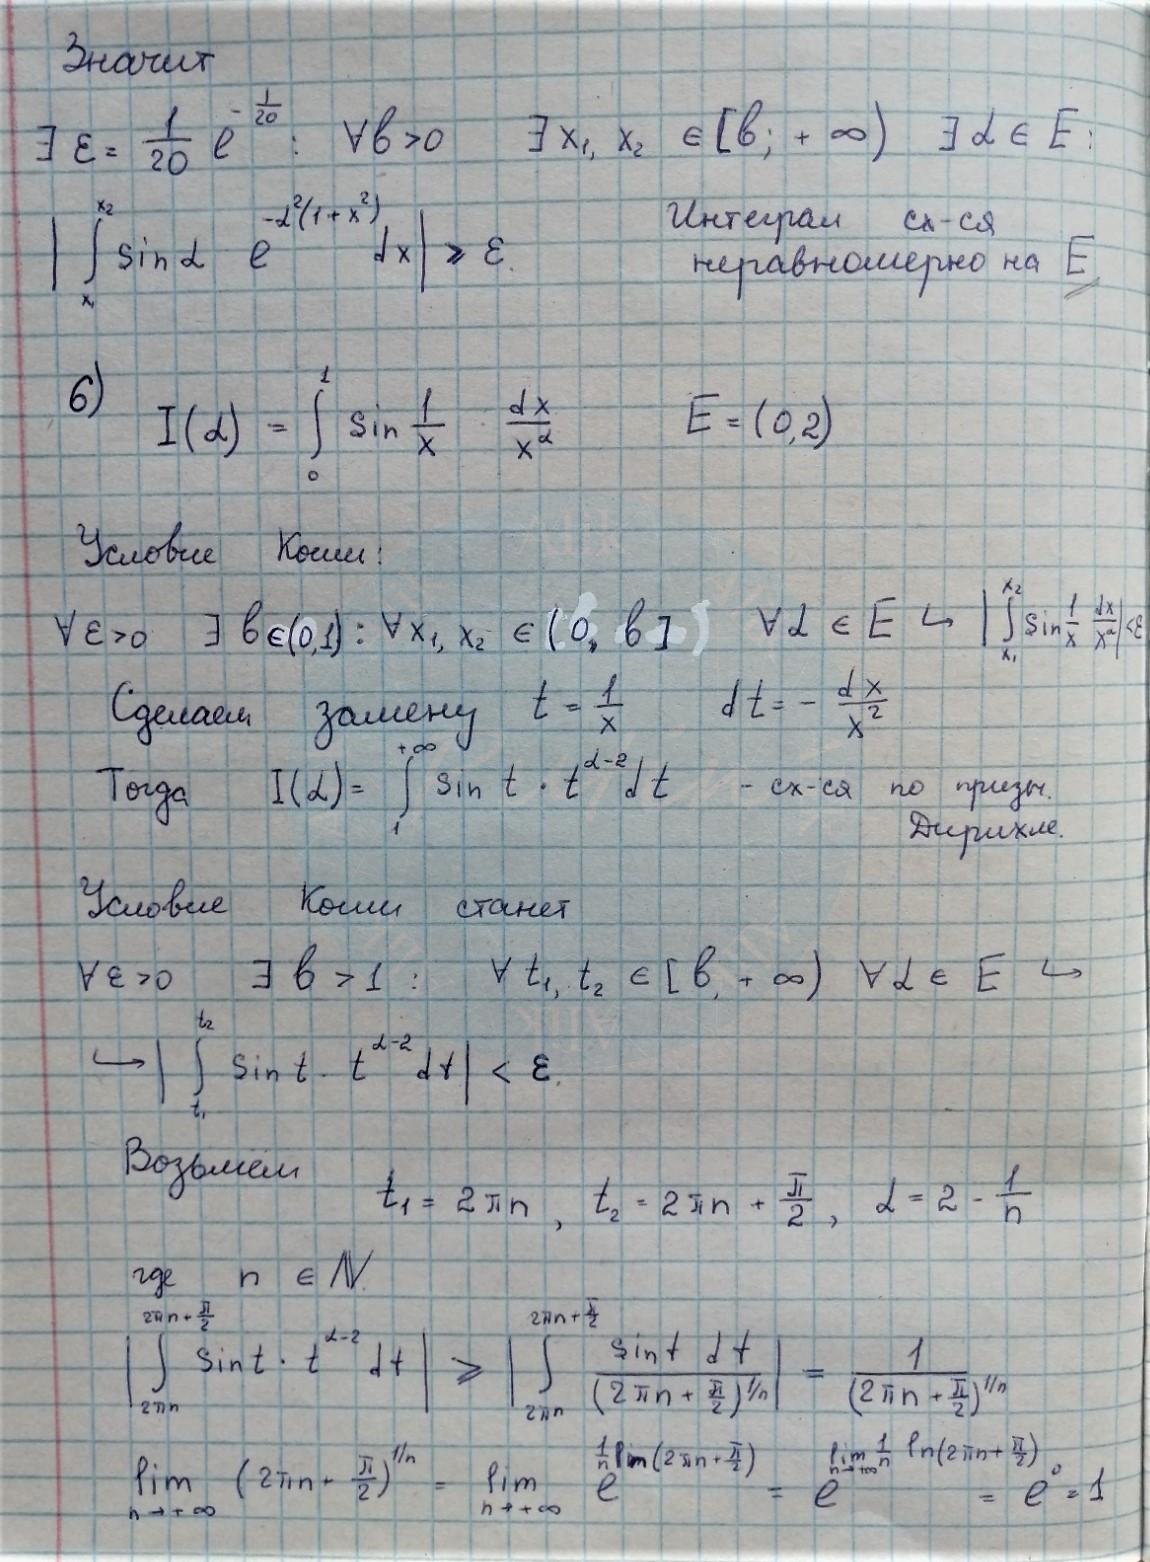 Значит
∃ ε = 1/20 e^(-1/20) : ∀b>0 ∃ x₁, x₂ ∈ [b; +∞) ∃ α ∈ E:
|∫_{x₁}^{x₂} sin α e^(-α²(1+x²)) dx| ≥ ε. Интеграл сх-ся
неравномерно на E
6) I(α) = ∫_0^1 sin 1/x dx/x^α E = (0,2)
Условие Коши:
∀ε>0 ∃ b∈(0,1): ∀x₁, x₂ ∈ (0, b] ∀α ∈ E ↪ |∫_{x₁}^{x₂} sin 1/x dx/x^α| < ε
Сделаем замену t = 1/x dt = - dx/x²
Тогда I(α) = ∫_1^{+∞} sin t · t^(α-2) dt - сх-ся по призн.
Дирихле.
Условие Коши станет
∀ε>0 ∃ b>1: ∀ t₁, t₂ ∈ [b, +∞) ∀α ∈ E ↪
↪ |∫_{t₁}^{t₂} sin t · t^(α-2) dt| < ε.
Возьмем
t₁ = 2πn, t₂ = 2πn + π/2, α = 2 - 1/n
где n ∈ ℕ.
|∫_{2πn}^{2πn+π/2} sin t · t^(α-2) dt| ≥ |∫_{2πn}^{2πn+π/2} sin t dt/(2πn + π/2)^(1/n)| = 1/(2πn + π/2)^(1/n)
lim_{n→+∞} (2πn + π/2)^(1/n) = lim_{n→+∞} e^(1/n ln(2πn+π/2)) = e^(lim_{n→+∞} 1/n ln(2πn+π/2)) = e⁰ = 1